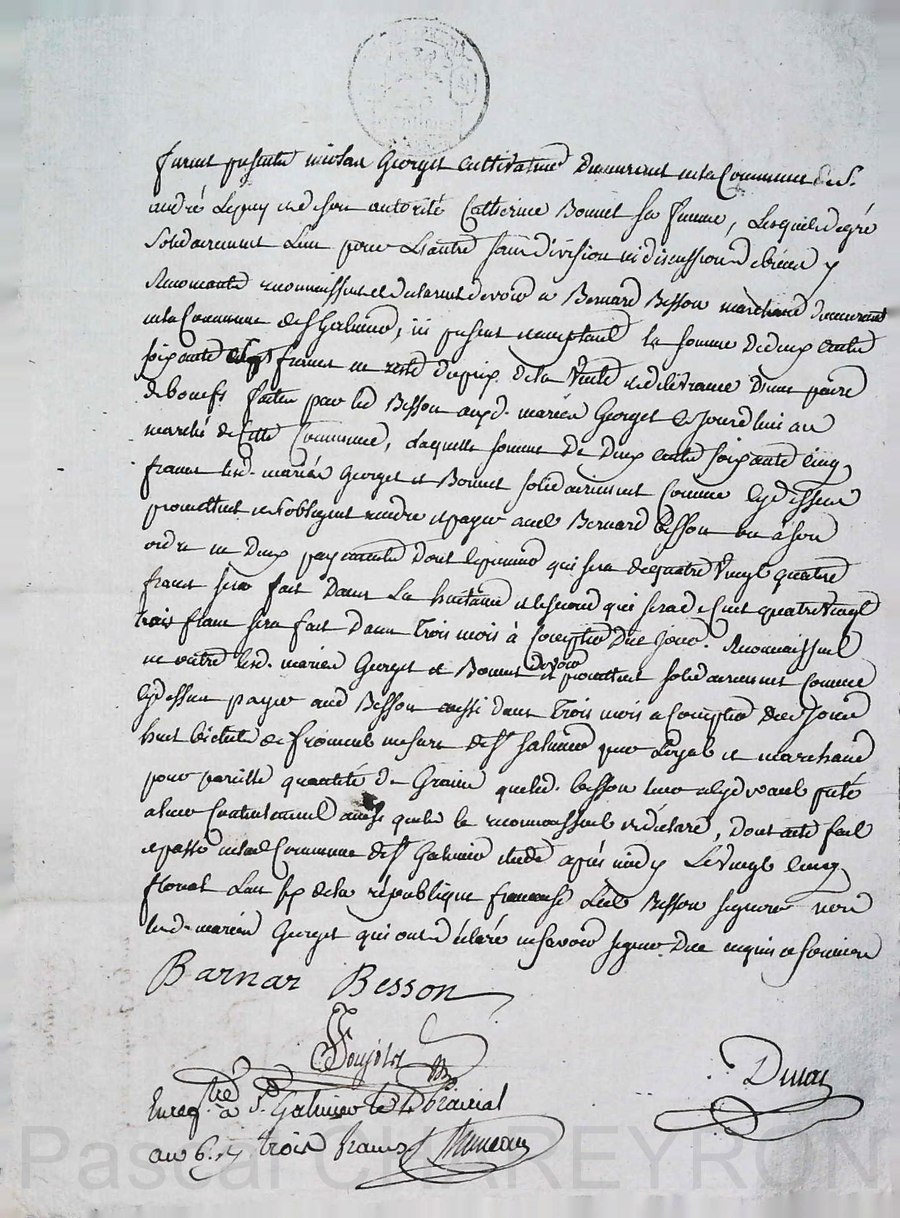 furent présents nicolas Georget cultivateur demeurant en la Commune de St.
andré Lepuy et de son autorité Catherine Bonnet sa femme, Lesquels de gré
solidairement L'un pour L'autre sans division ni discussion de biens y
renonçants reconnaissent et declarent devoir a Bernard Besson marchand demeurant
en la Commune de St Galmier, ici présent et acceptant la somme de deux cents
soixante francs en reste du prix de la Vente et délivrance d'une paire
de bœufs faite par led Besson auxd. mariés Georget cejourdhui au
marché de cette Commune, Laquelle somme de deux cents soixante cinq
francs lesd. mariés Georget et Bonnet solidairement comme cydessus
promettent et s'obligent rendre et payer aud Bernard Besson ou à son
ordre en deux payements dont le premier qui sera de quatre vingt quatre
francs sera fait dans La huitaine et le second qui sera de cent quatre vingt
trois francs sera fait dans trois mois à Compter de ce Jour. Reconnaissent
en outre lesd. mariés Georget et Bonnet devoir et promettent solidairement comme
cydessus payer aud Besson aussi dans trois mois a compter de ce Jour
huit bichets de froment mesure de St Galmier pur Loyal et marchand
pour pareille quantité de Grains que led. Besson leur a cydevant prêté
a leur contentement ainsi que les reconnaissent et déclaré, dont acte fait
et passé en lad Commune de St Galmier étude après midy Le vingt cinq
floreal L'an six de la république française Led Besson signera non
lesd. mariés Georget qui ont déclaré ne savoir signer de ce enquis et sommés
Barnar Besson
Enregtré à St Galmier le prairial
an 6. r. trois francs
Pascal CHAREYRON